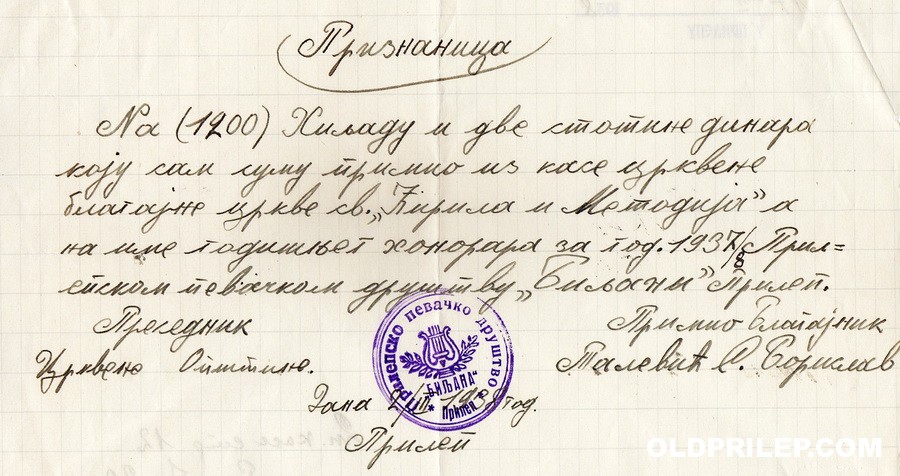 Признаница
На (1200) Хиљаду и две стотине динара
коју сам суму примио из касе црквене
благајне цркве св. „Кирила и Методија" а
на име годишњег хонорара за год. 1937/8 Прил=
епском певачком друштву „Биљани" Прилеп.
Преседник
Црквене Општине.
Примио Благајник
Талевић А. Борислав
Прилепско певачко друштво
"БИЉАНА"
* Прилеп *
Дана год.
Прилеп
OLDPRILEP.COM